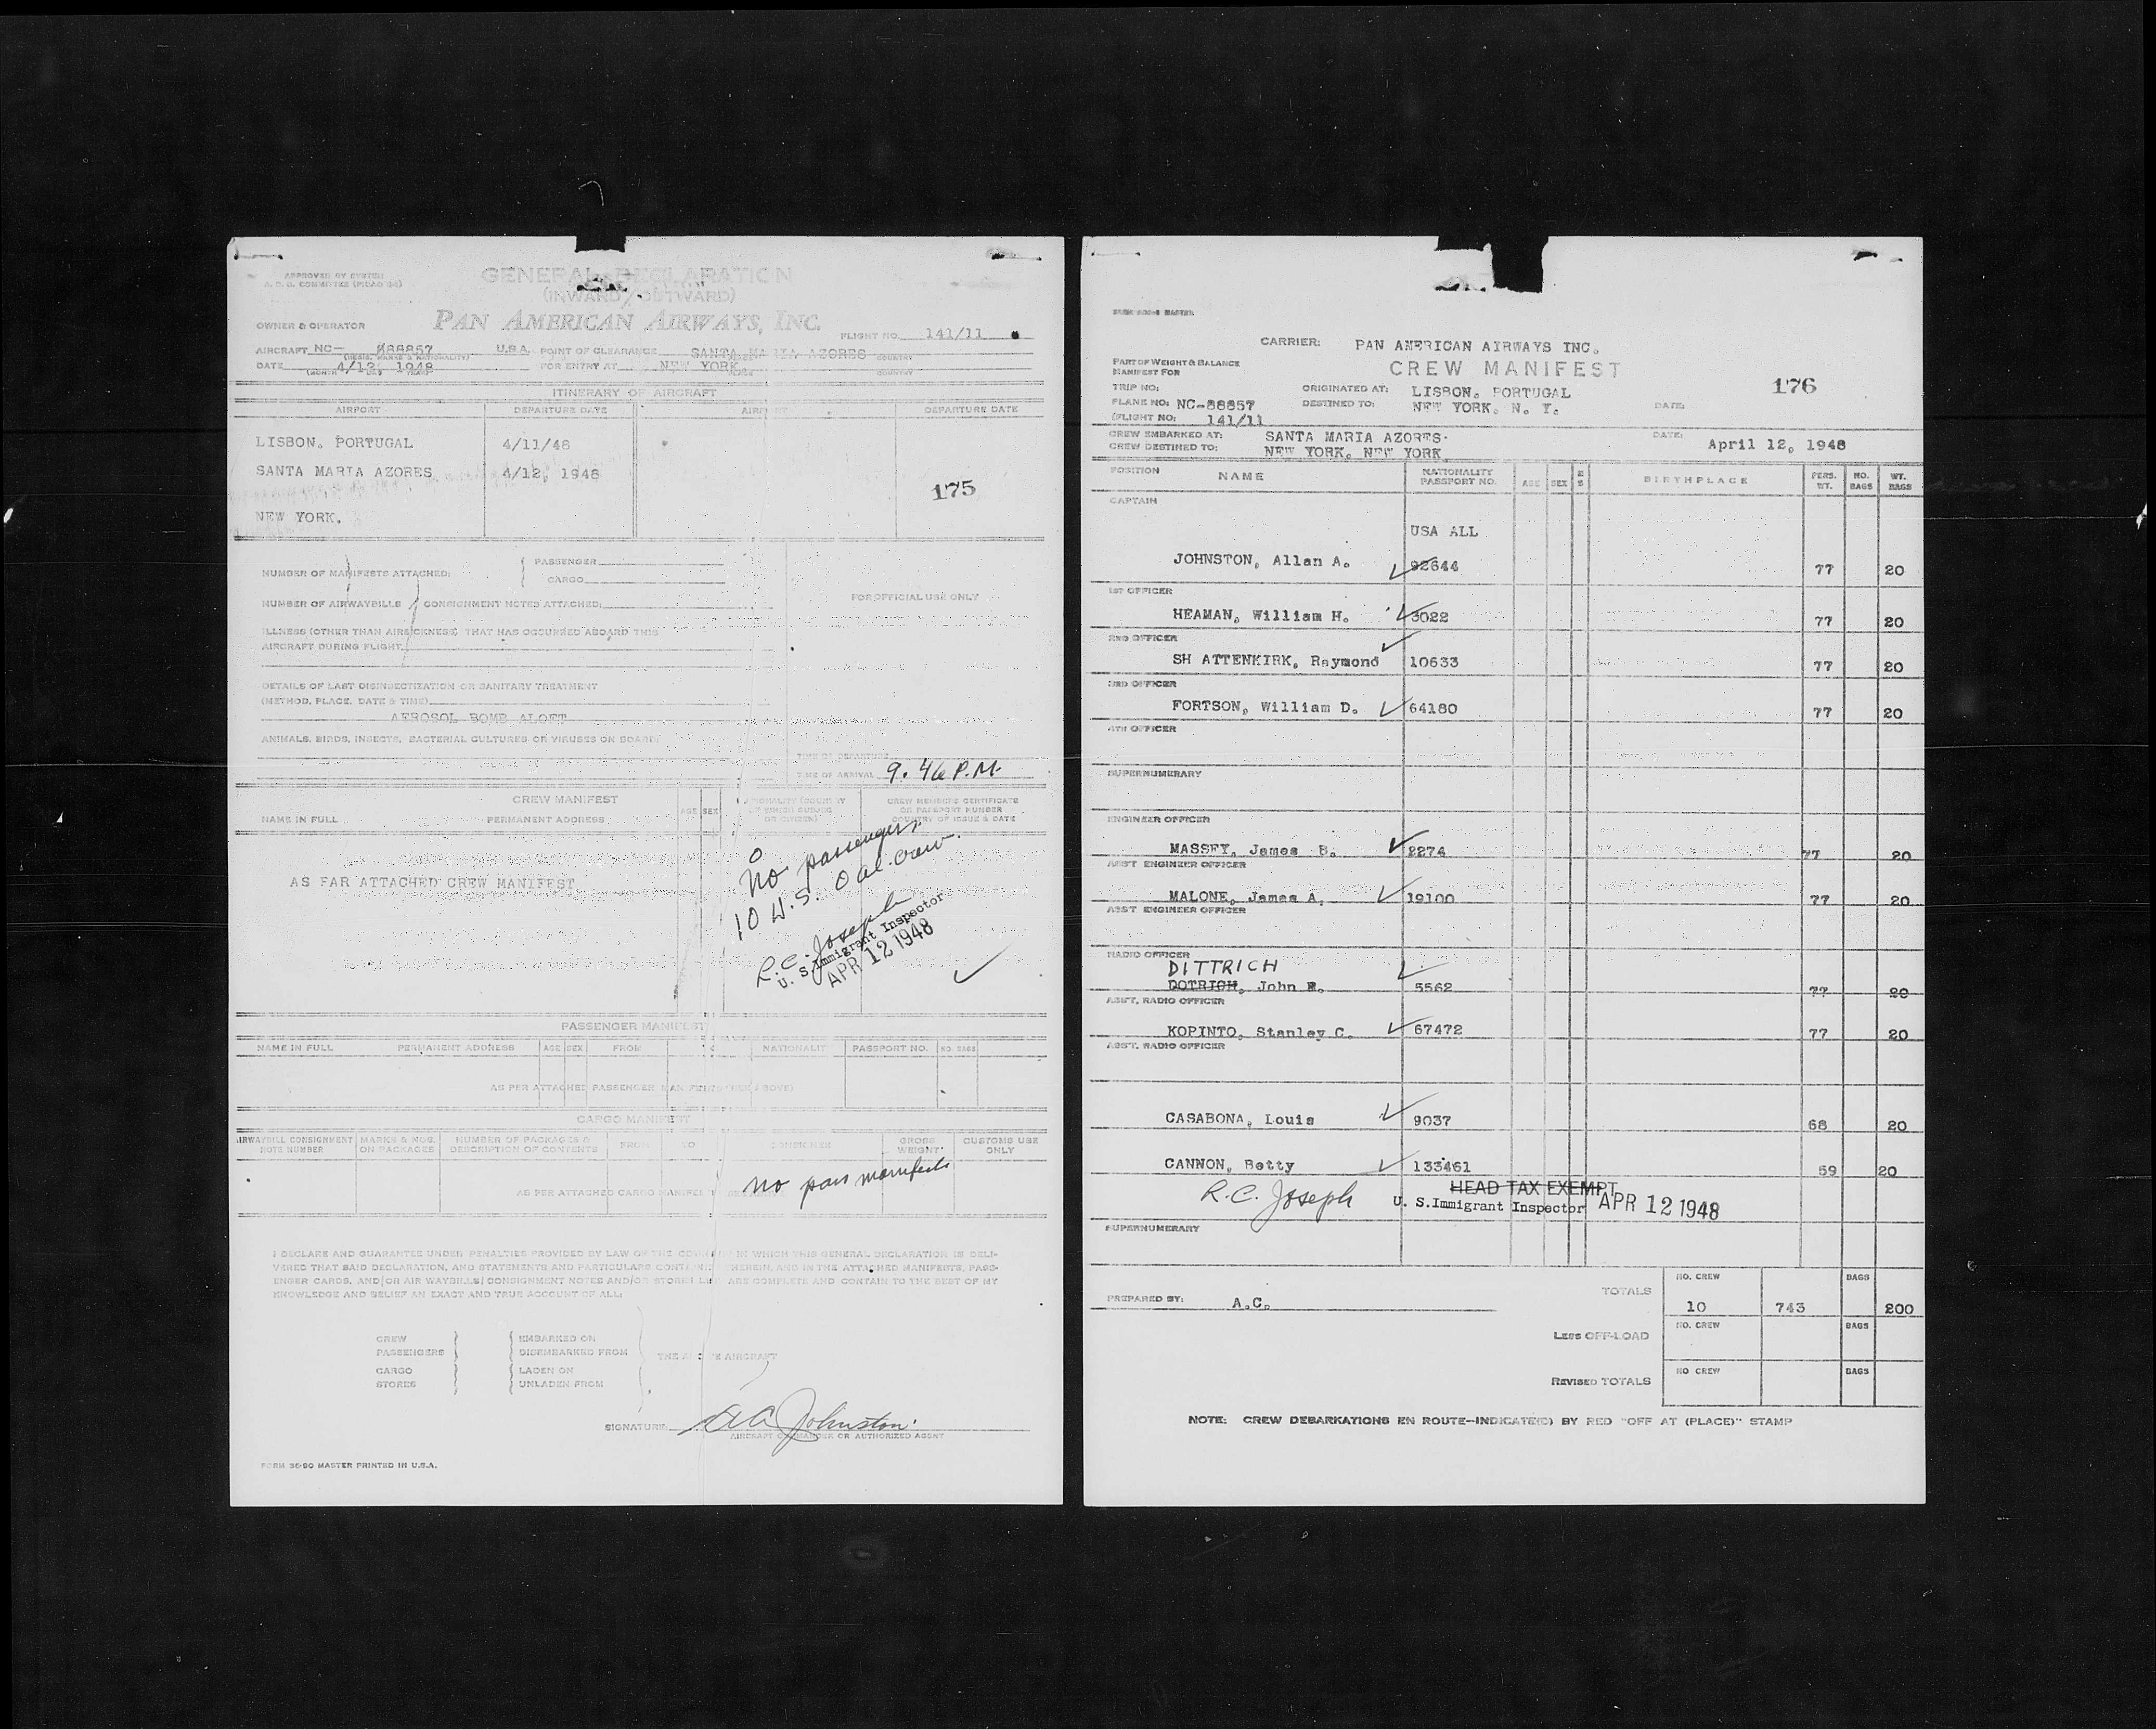 APPROVED BY SYSTEM
GENERAL DECLARATION
(INWARD/OUTWARD)
OWNER & OPERATOR PAN AMERICAN AIRWAYS, INC. FLIGHT NO. 141/11
AIRCRAFT NC- 88857 U.S.A. POINT OF CLEARANCE SANTA MARIA AZORES COUNTRY
(REGIS. MARKS & NATIONALITY)
DATE 4/12 1948 FOR ENTRY AT NEW YORK
PLACE COUNTRY
ITINERARY OF AIRCRAFT
AIRPORT DEPARTURE DATE AIRPORT DEPARTURE DATE
LISBON. PORTUGAL 4/11/48
SANTA MARIA AZORES 4/12, 1948
175
NEW YORK.
NUMBER OF MANIFESTS ATTACHED: PASSENGER
CARGO
NUMBER OF AIRWAYBILLS / CONSIGNMENT NOTES ATTACHED: FOR OFFICIAL USE ONLY
ILLNESS (OTHER THAN AIRSICKNESS) THAT HAS OCCURRED ABOARD THIS
AIRCRAFT DURING FLIGHT
DETAILS OF LAST DISINSECTIZATION OR SANITARY TREATMENT
(METHOD, PLACE, DATE & TIME)
AEROSOL BOMB ALOFT
ANIMALS, BIRDS, INSECTS, BACTERIAL CULTURES OR VIRUSES ON BOARD:
TIME OF DEPARTURE
TIME OF ARRIVAL 9.46 P.M.
CREW MANIFEST
NAME IN FULL PERMANENT ADDRESS AGE SEX NATIONALITY (COUNTRY OF WHICH SUBJECT OR CITIZEN) CREW MEMBERS CERTIFICATE OR PASSPORT NUMBER COUNTRY OF ISSUE & DATE
AS FAR ATTACHED CREW MANIFEST
No passengers
10 U.S. crew.
R.C. Joseph
U. S. Immigrant Inspector
APR 12 1948
PASSENGER MANIFEST
NAME IN FULL PERMANENT ADDRESS AGE SEX FROM NATIONALITY PASSPORT NO. NO. BAGS
AS PER ATTACHED PASSENGER MANIFEST (SEE ABOVE)
CARGO MANIFEST
AIRWAYBILL CONSIGNMENT NOTE NUMBER MARKS & NOS. ON PACKAGES NUMBER OF PACKAGES & DESCRIPTION OF CONTENTS FROM TO CONSIGNEE GROSS WEIGHT CUSTOMS USE ONLY
AS PER ATTACHED CARGO MANIFEST
no pass manifests
I DECLARE AND GUARANTEE UNDER PENALTIES PROVIDED BY LAW OF THE COUNTRY IN WHICH THIS GENERAL DECLARATION IS DELI-
VERED THAT SAID DECLARATION, AND STATEMENTS AND PARTICULARS CONTAINED THEREIN, AND IN THE ATTACHED MANIFESTS, PASS-
ENGER CARDS, AND/OR AIR WAYBILLS/CONSIGNMENT NOTES AND/OR STORES LIST ARE COMPLETE AND CONTAIN TO THE BEST OF MY
KNOWLEDGE AND BELIEF AN EXACT AND TRUE ACCOUNT OF ALL:
CREW EMBARKED ON
PASSENGERS DISEMBARKED FROM THE ABOVE AIRCRAFT
CARGO LADEN ON
STORES UNLADEN FROM
SIGNATURE: AA Johnston
AIRCRAFT COMMANDER OR AUTHORIZED AGENT
FORM 36-90 MASTER PRINTED IN U.S.A.
CARRIER: PAN AMERICAN AIRWAYS INC.
PART OF WEIGHT & BALANCE
MANIFEST FOR
CREW MANIFEST
176
TRIP NO: ORIGINATED AT: LISBON. PORTUGAL
PLANE NO: NC-88857 DESTINED TO: NEW YORK. N. Y. DATE:
(FLIGHT NO: 141/11
CREW EMBARKED AT: SANTA MARIA AZORES. DATE: April 12, 1948
CREW DESTINED TO: NEW YORK. NEW YORK
POSITION NAME NATIONALITY PASSPORT NO. AGE SEX M S BIRTHPLACE PERS. WT. NO. BAGS WT. BAGS
CAPTAIN
USA ALL
JOHNSTON, Allan A. 92644 77 20
1ST OFFICER
HEAMAN, William H. 3022 77 20
2ND OFFICER
SH ATTENKIRK, Raymond 10633 77 20
3RD OFFICER
FORTSON, William D. 64180 77 20
4TH OFFICER
SUPERNUMERARY
ENGINEER OFFICER
MASSEY, James B. 2274 77 20
ASST ENGINEER OFFICER
MALONE, James A. 19100 77 20
ASST ENGINEER OFFICER
RADIO OFFICER
DITTRICH
DOTRICH, John R. 5562 77 20
ASST. RADIO OFFICER
KOPINTO, Stanley C. 67472 77 20
ASST. RADIO OFFICER
CASABONA, Louis 9037 68 20
CANNON, Betty 133461 59 20
HEAD TAX EXEMPT
R.C. Joseph U. S.Immigrant Inspector APR 12 1948
SUPERNUMERARY
PREPARED BY: A.C.
TOTALS NO. CREW 10 743 BAGS 200
LESS OFF-LOAD NO. CREW BAGS
REVISED TOTALS NO CREW BAGS
NOTE: CREW DEBARKATIONS EN ROUTE--INDICATE(D) BY RED "OFF AT (PLACE)" STAMP